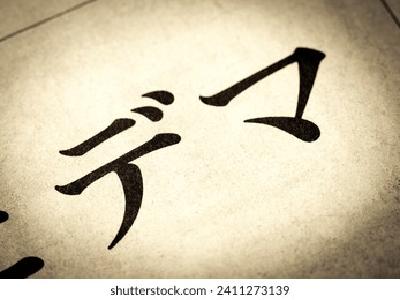 デマ
shutterstock.com · 2411273139